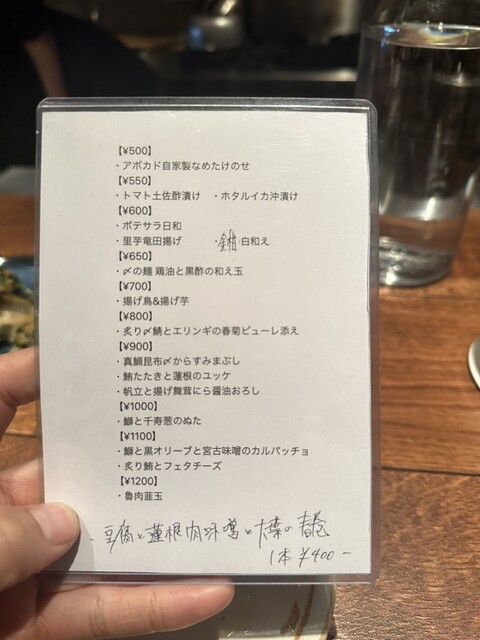 【¥500】
・アボカド自家製なめたけのせ
【¥550】
・トマト土佐酢漬け ・ホタルイカ沖漬け
【¥600】
・ポテサラ日和
・里芋竜田揚げ ・金柑白和え
【¥650】
・〆の麺 鶏油と黒酢の和え玉
【¥700】
・揚げ鳥&揚げ芋
【¥800】
・炙り〆鯖とエリンギの春菊ピューレ添え
【¥900】
・真鯛昆布〆からすみまぶし
・鮪たたきと蓮根のユッケ
・帆立と揚げ舞茸にら醤油おろし
【¥1000】
・鰤と千寿葱のぬた
【¥1100】
・鰤と黒オリーブと宮古味噌のカルパッチョ
・炙り鮪とフェタチーズ
【¥1200】
・魯肉韮玉
・豆腐と蓮根肉味噌と大葉の春巻
1本 ¥400-